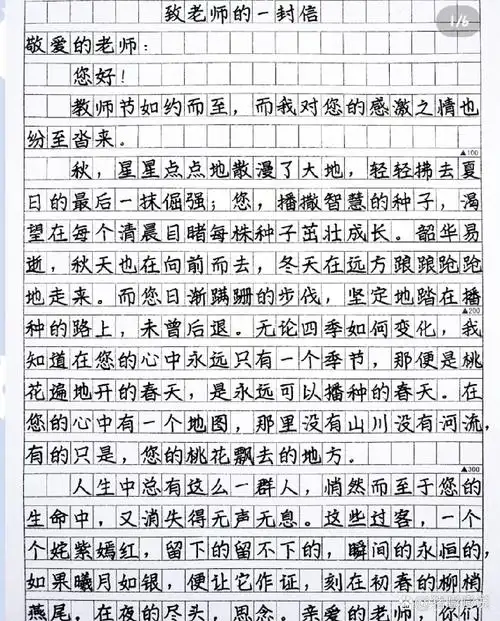 致老师的一封信
1/6
敬爱的老师:
您好!
教师节如约而至,而我对您的感激之情也
纷至沓来。
▲100
秋,星星点点地散漫了大地,轻轻拂去夏
日的最后一抹倔强;您,播撒智慧的种子,渴
望在每个清晨目睹每株种子茁壮成长。韶华易
逝,秋天也在向前而去,冬天在远方踉踉跄跄
地走来。而您日渐蹒跚的步伐,坚定地踏在播
▲200
种的路上,未曾后退。无论四季如何变化,我
知道在您的心中永远只有一个季节,那便是桃
花遍地开的春天,是永远可以播种的春天。在
您的心中有一个地图,那里没有山川没有河流,
有的只是,您的桃花飘去的地方。
▲300
人生中总有这么一群人,悄然而至于您的
生命中,又消失得无声无息。这些过客,一个
个姹紫嫣红,留下的留不下的,瞬间的永恒的,
如果曦月如银,便让它作证,刻在初春的柳梢
燕尾。在夜的尽头,思念。亲爱的老师,你们